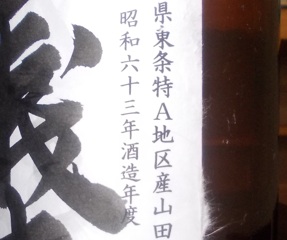 県東条特A地区産山田
昭和六十三年酒造年度